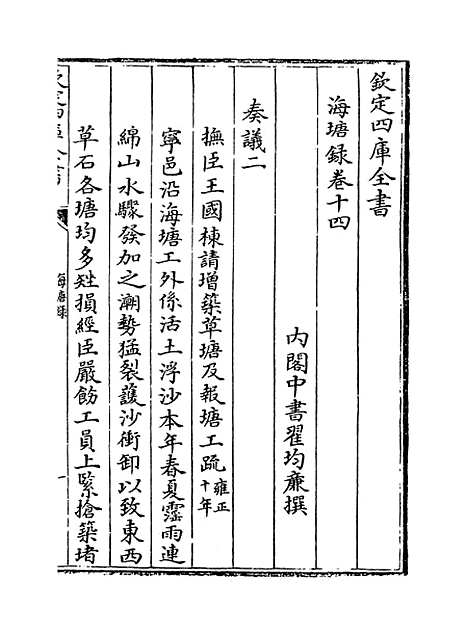 欽定四庫全書
海塘録卷十四
内閣中書翟均廉撰
奏議二
撫臣王國棟請增築草塘及報塘工疏雍正十年
寧邑沿海塘工外係活土浮沙本年春夏霪雨連
綿山水驟發加之潮勢猛裂護沙衝卸以致東西
草石各塘均多矬損經臣嚴飭工員上緊搶築堵
海塘録
一